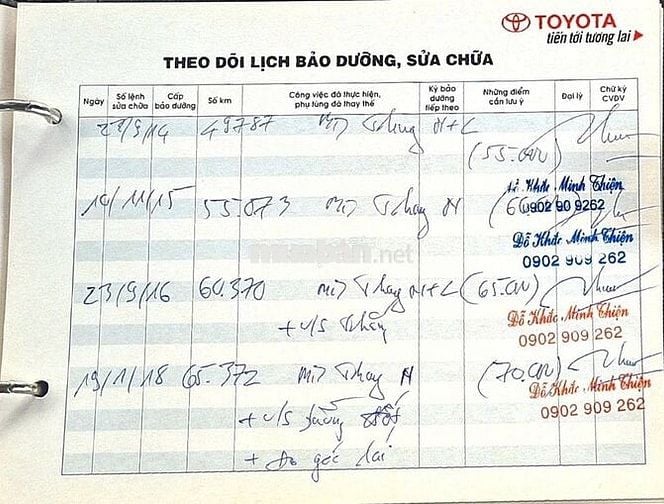 TOYOTA
tiến tới tương lai
THEO DÕI LỊCH BẢO DƯỠNG, SỬA CHỮA
Ngày Số lệnh sửa chữa Cấp bảo dưỡng Số km Công việc đã thực hiện, phụ tùng đã thay thế Kỳ bảo dưỡng tiếp theo Những điểm cần lưu ý Đại lý Chữ ký CVDV
49787 Thay N+L
(55.000)
14/11/15 55.873 Thay N
Đỗ Khắc Minh Thiện
0902 90 9262
Đỗ Khắc Minh Thiện
0902 909 262
muaban.net
23/9/16 60.370 Thay N+L (65.000)
+ v/s thắng
Đỗ Khắc Minh Thiện
0902 909 262
19/1/18 65.372 Thay N (70.000)
Đỗ Khắc Minh Thiện
0902 909 262
+ v/s
+ đo góc lái